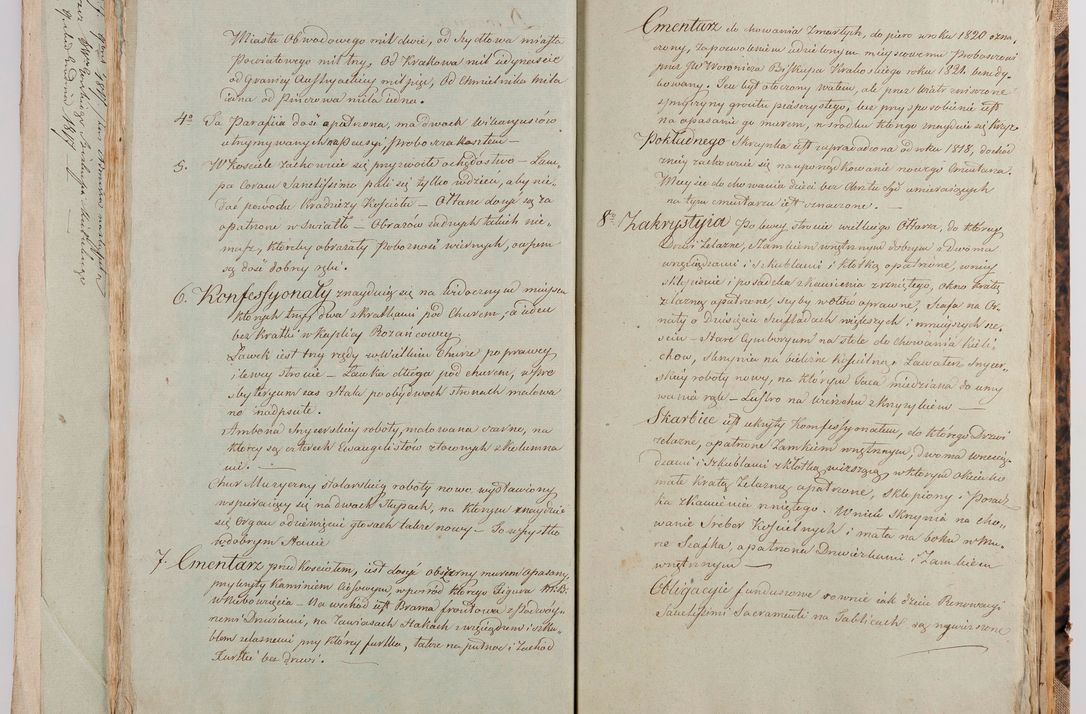 Miasta Obwodowego mil dwie, od Szydłowa miasta
Powiatowego mil trzy, Od Krakowa mil iedynaście
od Granicy Austryackiey mil pięć, Od Chmielnika mila
iedna od Pinczowa mila iedna.
4° Ta Parafiia dość opatrzona, ma dwoch Wikaryuszów
utrzymywanych na pensyi, Proboszcza kosztem —
5. W Kościele zachowuie się przyzwoite ochędostwo — Lam,
pa Coram Sanctissimo pali się tylko w dzień, aby nie
dać powodu Kradzieży Kościoła — Ołtarze dosyć są za
opatrzone w światło — Obrazów żadnych takich nie
masz, ktoreby obrażały pobożność wiernych, owszem
są dość dobrey ręki.
6. Konfessyonały znayduią się na widocznym mieyscu
których trzy, dwa z kratkami pod Churem, a ieden
bez kratki w Kaplicy Rozańcowey.
Ławek iest trzy rzędy w Wielkim Churze po prawey
i lewey stronie — Ławka długa pod churem, w Pre
sbyteryum zaś Stale po obydwoch stronach malowa
ne nadpsute.
Ambona Snycerskiey roboty, malowana czarno, na
którey są czterech Ewangelistów złoconych z Kolumna
mi. —
Chur Muzyczny stolarskiey roboty nowo wystawiony
wspieraiący się na dwoch słupach, na którym znayduie
się Organ o dziewięciu głosach także nowy — To wszystko
w dobrym stanie
7. Cmentarz przed kościołem, iest dosyć obszerny murem opasany,
przykryty Kamieniem Ciosowym, wpośród ktorego Figura N.M.B.
w Niebowzięcia — Na wschód iest Brama frontowa z Podwóy,
nemi Drzwiami, na Zawiasach Hakach z wrzeciądzem i szku,
blem żelaznemi przy którey furtka, także na pułnoc i Zachód
Furtki bez drzwi. —
Cmentarz do chowania Zmarłych, dopiero w roku 1820 ozna,
czony, za pozwoleniem udzielonym mieyscowemu Proboszczowi
przez JW Woronicza Biskupa Krakoskiego roku 1821. benedy,
kowany. Ten był otoczony wałem, ale przez wiatr zniszczone
z przyczyny gruntu piasczystego, lecz przysposobienie iest
na opasanie go murem, w środku ktorego znayduie się krzyż
Pokładnego Skrzynka iest zaprowadzona od roku 1818, dochód
z niey zachowuie się na uporządkowanie nowego Cmentarza.
Mieysce do chowania dzieci bez Chrztu Sgo umieraiących
na tym cmentarzu iest oznaczone. —
8° Zakrystyia Po lewey stronie wielkiego Ołtarza, do którey
Drzwi żelazne, z Zamkiem wnętrznym dobrym z Dwoma
wrzeciądzami i szkublami i kłotką opatrzone, w niey
sklepienie i posadzka z kamienia rżniętego, okno kratą
żelazną opatrzone, szyby w ołów oprawne, Szafa na Or,
naty o Dziesięciu Szufladach większych i mnieyszych no,
wa — stare Cymboryum na stole do chowania kieli,
chów, skrzynia na bieliznę kościelną, Lawaterz Snycer,
skiey roboty nowy, na którym Taca miedziana do umy
wania rąk — Lustro na wierzchu z krzyżykiem —
Skarbiec iest ukryty Konfessyonałem, do którego Drzwi
żelazne, opatrzone Zamkiem wnętrznym, dwoma wrzecią,
dzami i szkublami z kłotką większą, w którym okienko
małe kratą żelazną opatrzone, sklepiony i Posadz,
ka z kamienia rżniętego. W nich Skrzynia na cho,
wanie Sreber Kościelnych i mała na boku w Mu,
rze Szafka, opatrzona Drzwiczkami i Zamkiem
wnętrznym —
Obligacyie funduszowe rownie iak dzieie Renowacyi
Sanctissimi Sacramenti na Tablicach są wywieszone